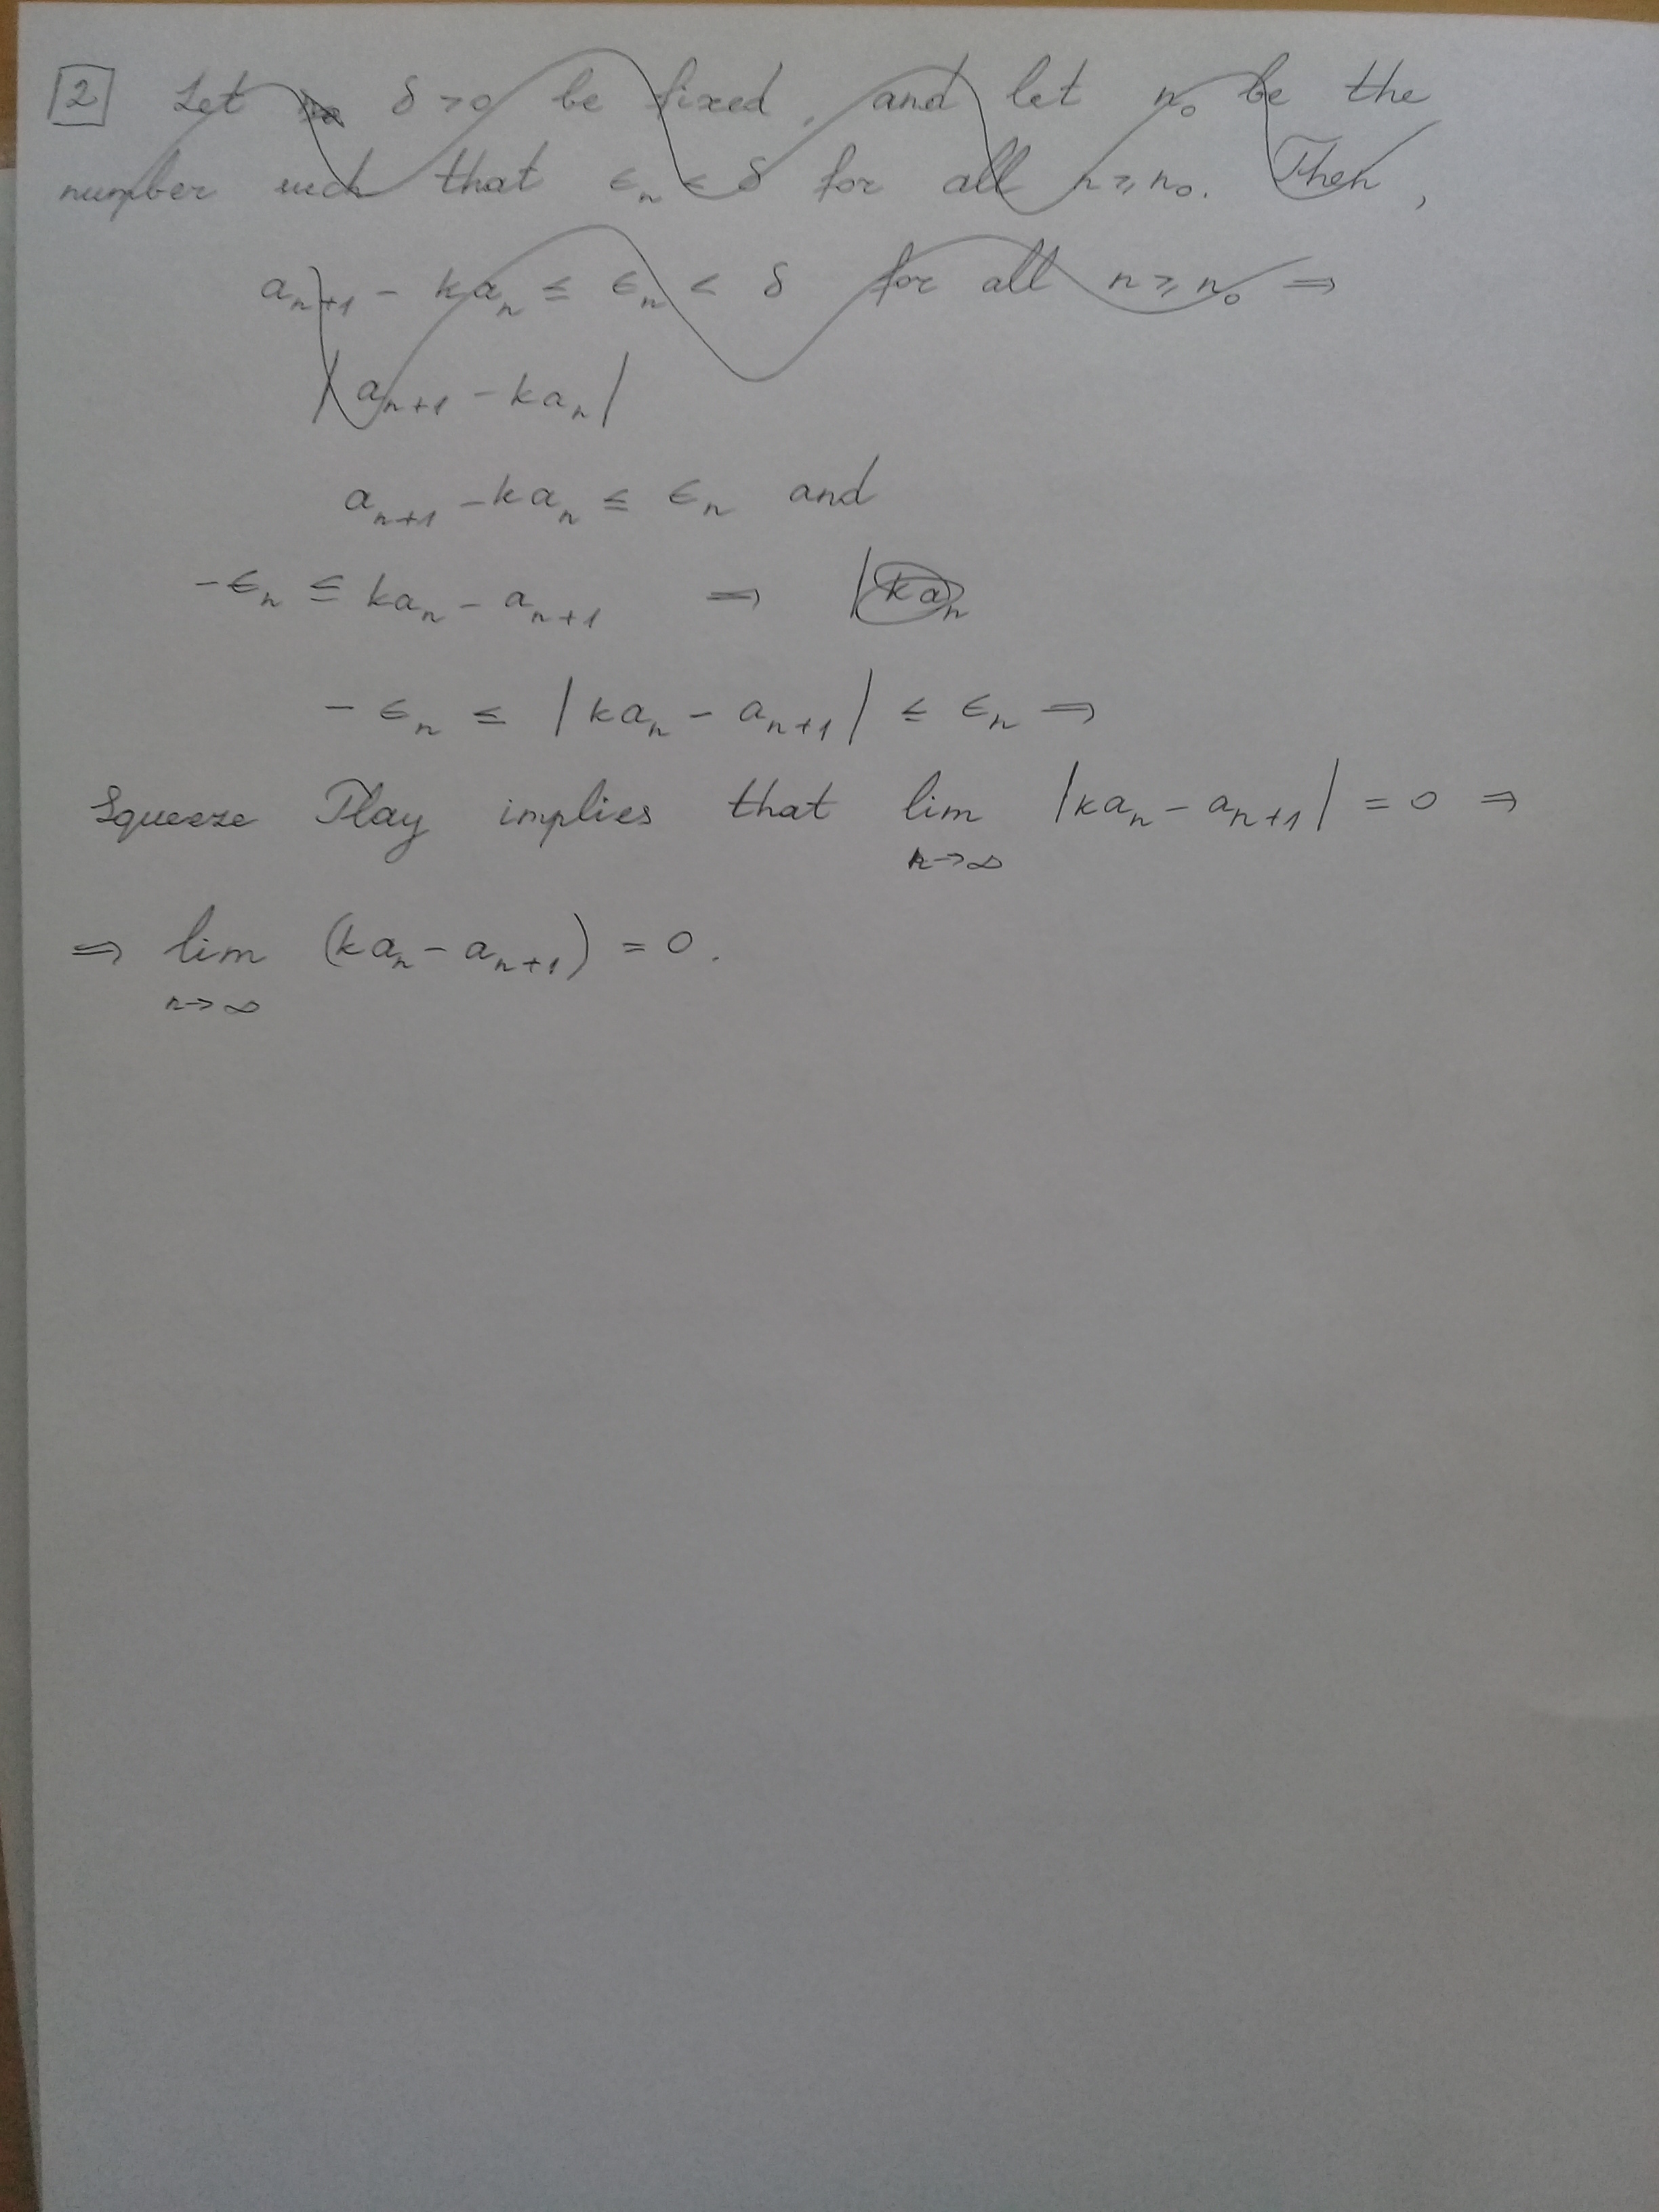 2 Let δ > 0 be fixed, and let n₀ be the
number such that ϵₙ < δ for all n ≥ n₀. Then,
aₙ₊₁ − kaₙ ≤ ϵₙ < δ for all n ≥ n₀ ⇒
|aₙ₊₁ − kaₙ|
aₙ₊₁ − kaₙ ≤ ϵₙ and
−ϵₙ ≤ kaₙ − aₙ₊₁ ⇒ |kaₙ
− ϵₙ ≤ |kaₙ − aₙ₊₁| ≤ ϵₙ ⇒
Squeeze Play implies that lim |kaₙ − aₙ₊₁| = 0 ⇒
n→∞
⇒ lim (kaₙ − aₙ₊₁) = 0.
n→∞